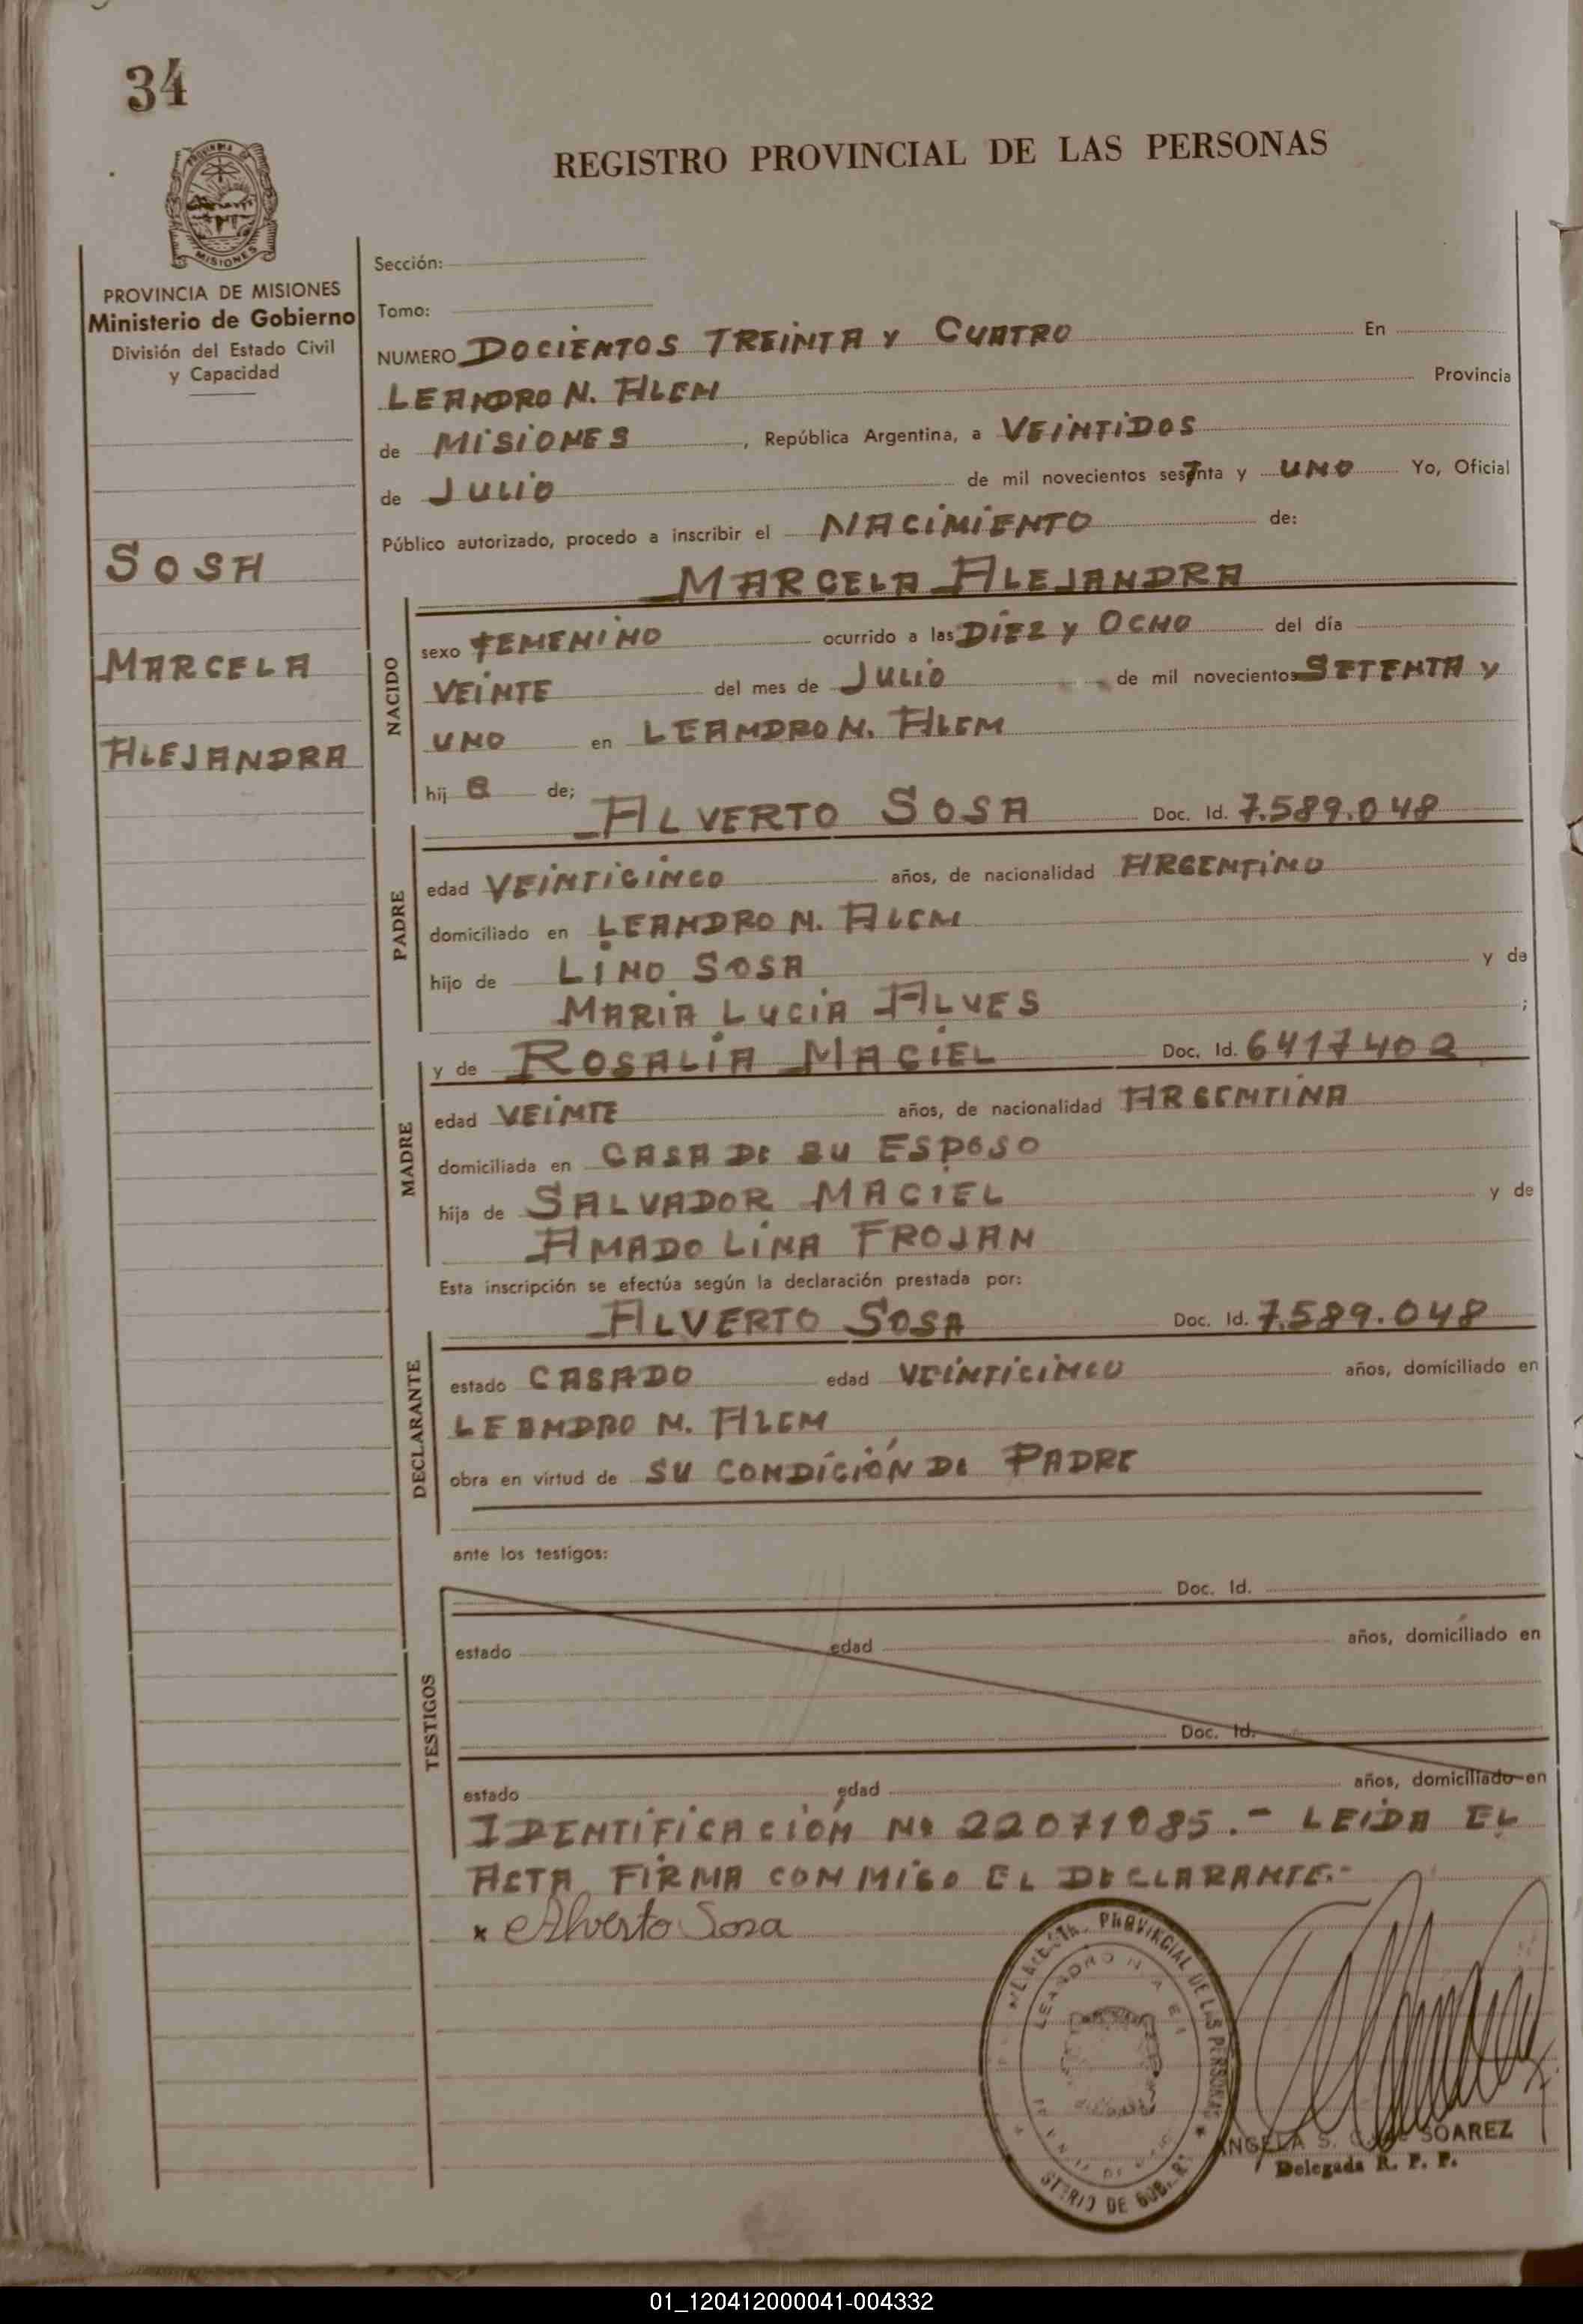 34
REGISTRO PROVINCIAL DE LAS PERSONAS
MISIONES
PROVINCIA DE MISIONES
Ministerio de Gobierno
División del Estado Civil
y Capacidad
SOSA
MARCELA
ALEJANDRA
Sección:
Tomo:
NUMERO DOCIENTOS TREINTA Y CUATRO En
LEANDRO N. ALEM Provincia
de MISIONES, República Argentina, a VEINTIDOS
de JULIO de mil novecientos sesTnta y UNO Yo, Oficial
Público autorizado, procedo a inscribir el NACIMIENTO de:
MARCELA ALEJANDRA
NACIDO
sexo FEMENINO ocurrido a las DIEZ y OCHO del día
VEINTE del mes de JULIO de mil novecientos SETENTA y
UNO en LEANDRO N. ALEM
hij a de;
ALVERTO SOSA Doc. Id. 7.589.048
PADRE
edad VEINTICINCO años, de nacionalidad ARGENTINO
domiciliado en LEANDRO N. ALEM
hijo de LINO SOSA y de
MARIA LUCIA ALVES ;
y de ROSALIA MACIEL Doc. Id. 6417402
MADRE
edad VEINTE años, de nacionalidad ARGENTINA
domiciliada en CASA DE SU ESPOSO
hija de SALVADOR MACIEL y de
AMADO LINA FROJAN
Esta inscripción se efectúa según la declaración prestada por:
ALVERTO SOSA Doc. Id. 7.589.048
DECLARANTE
estado CASADO edad VEINTICINCO años, domiciliado en
LEANDRO N. ALEM
obra en virtud de SU CONDICIÓN DE PADRE
ante los testigos:
Doc. Id.
TESTIGOS
estado edad años, domiciliado en
Doc. Id.
estado edad años, domiciliado en
IDENTIFICACIÓN Nº 22071085.- LEIDA EL
ACTA FIRMA CONMIGO EL DECLARANTE.-
x Alverto Sosa
PROVINCIAL DE LAS PERSONAS
LEANDRO N.
DE
ANGELA S. SOAREZ
Delegada R. P. P.
01_120412000041-004332